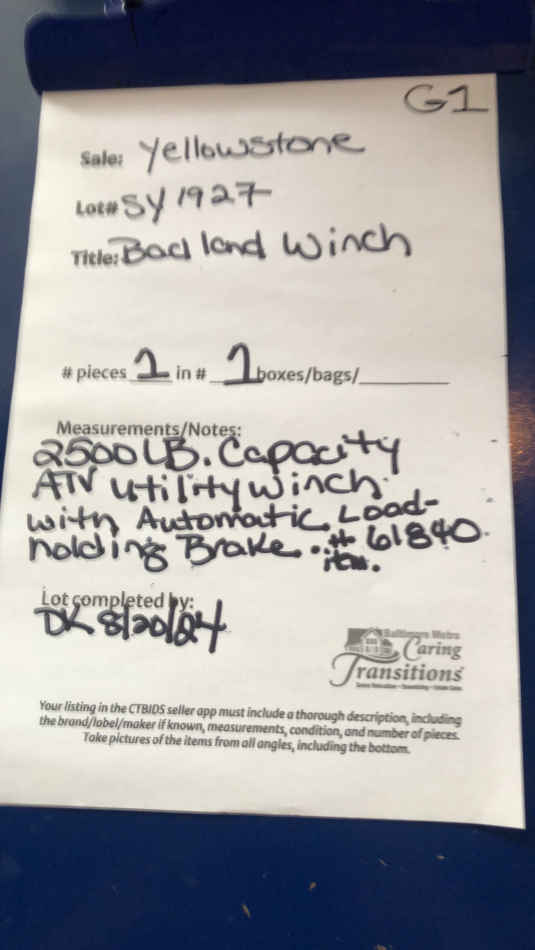 G1
Sale: Yellowstone
Lot# SY 1927
Title: Badland Winch
# pieces 1 in # 1 boxes/bags/________
Measurements/Notes:
2500 LB. Capacity
ATV Utility Winch
with Automatic Load-
holding Brake. # 61840.
itm.
Lot completed by:
DK 8/20/24
Baltimore Metro
Caring
Transitions
Your listing in the CTBIDS seller app must include a thorough description, including
the brand/label/maker if known, measurements, condition, and number of pieces.
Take pictures of the items from all angles, including the bottom.